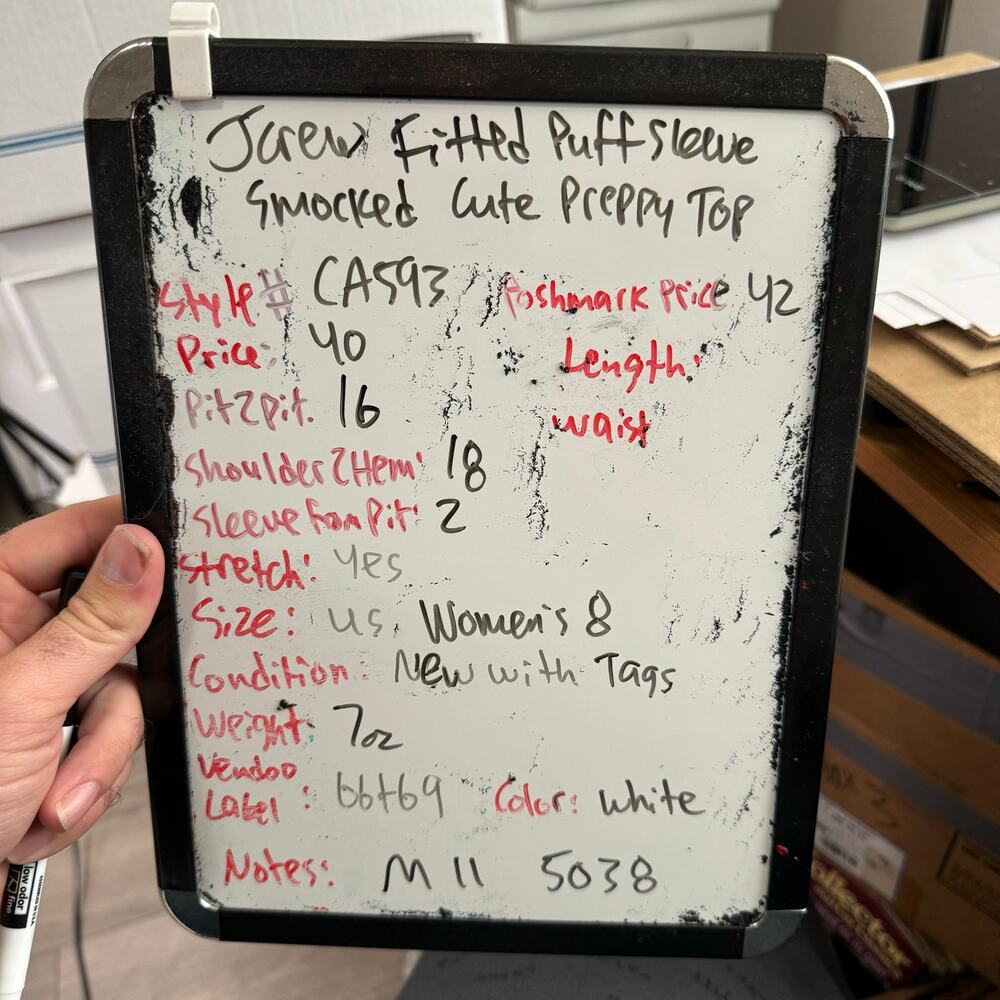 Jcrew Fitted Puff Sleeve
Smocked Cute Preppy Top
Style# CA593 Poshmark Price 42
Price: 40
Length:
Pit2pit. 16
waist
Shoulder2Hem: 18
Sleeve from Pit: 2
Stretch: Yes
Size: US, Women's 8
Condition: New with Tags
Weight: 7oz
Vendoo
Label: bbt69 Color: white
Notes: M 11 5038
low odor
fine